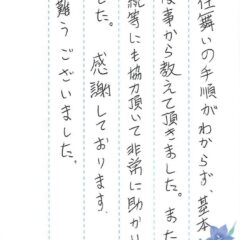 仕舞いの手順がわからず、基本
事から教えて頂きました。また
続等にも協力頂いて非常に助かり
した。 感謝しております。
難うございました。